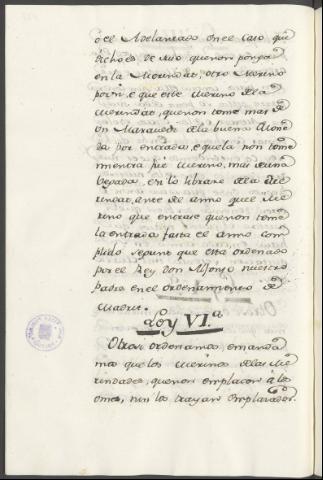 o el Adelantado en el caso que
dicho es de suso quenon pongā
en la Merindat, otro Merino
por si, e que este Merino de la
Merindat, quenon tome mas de
un Maravedi dela buena Mone
da por entrada, e quela non tome
mientra fue Merino, mas de una
vegada, en lo librare dela Me
rindat, ante del anno quel Me
rino que entrare quenon tome
la entrada fasta el anno com
plido segunt que esta ordenado
por el Rey Don Alfonso nuestro
Padre en el Ordenamiento de
Madrit.
Ley VI.ª
Otrosi ordenamos, e manda
mos que los Merinos delas Me
rindades, quenon emplacen à los
omes, nin los trayan emplazados.